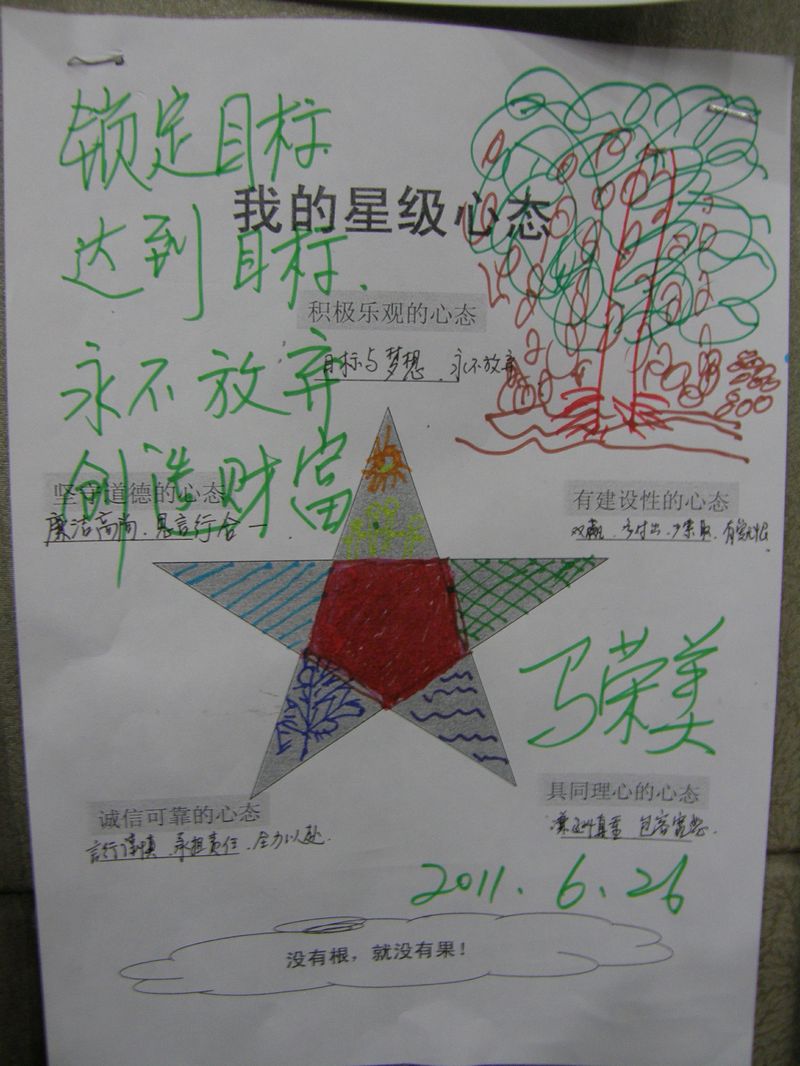 锁定目标
我的星级心态
达到目标.
积极乐观的心态
永不放弃
目标与梦想、永不放弃
创造财富
坚守道德的心态
有建设性的心态
廉洁高尚、思言行合一
双赢、多付出、少索取、有
马荣美
诚信可靠的心态
具同理心的心态
言行谨慎、承担责任、全力以赴.
尊重 包容
2011.6.26
没有根，就没有果！